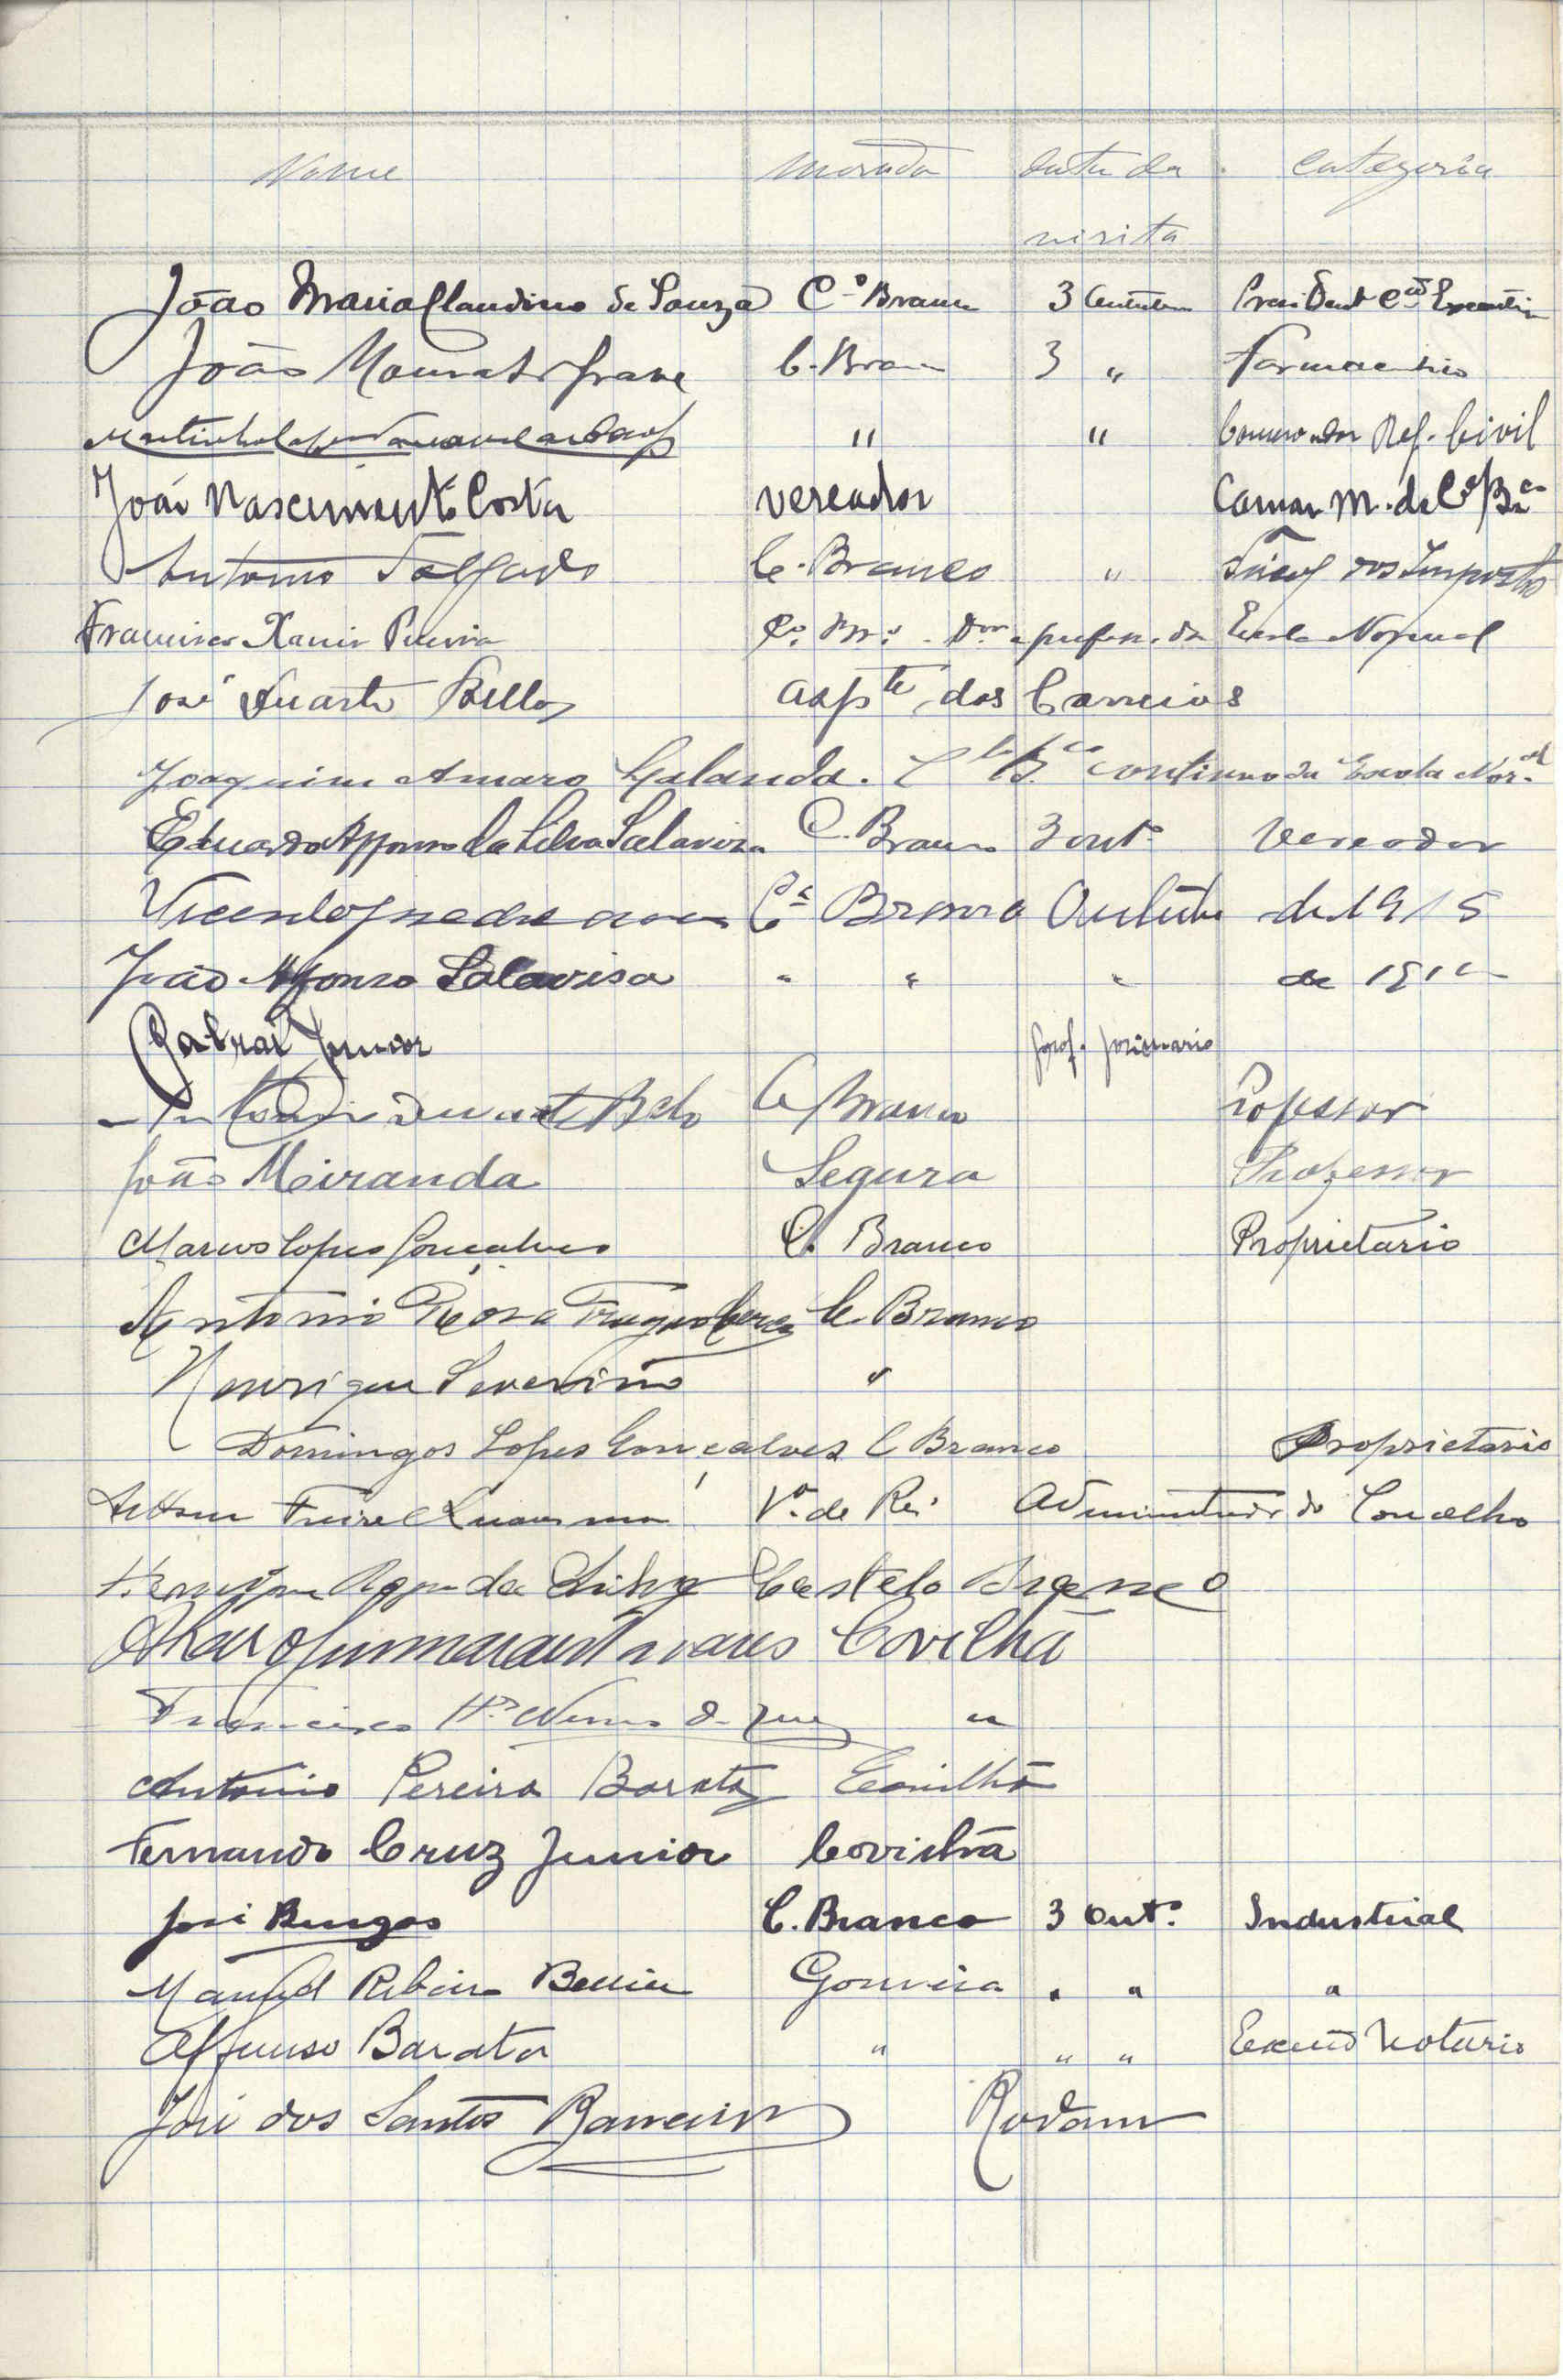 Nome morada data da categoria
visita
João Maria Claudino de Souza C.º Branco 3 Outubro President C.ão Executiva
João Mourato Grave C. Branco 3 " Farmaceutico
" " Conservador Reg. Civil
João Nascimento Costa vereador Camar M. de C.º B.co
Antonio Salgado C. Branco " Fiscal dos Impostos
Francisco Xavier Pereira C.º Br.º - D.or e profess. da Escola Normal
José Duarte Bello asp.te dos Correios
Joaquim Amaro Galanda. C.lo B.co continuo da Escola Nor.al
Eduardo Affonso da Silva Salavisa C. Branco 3 out.º Vereador
C.º Branco Outubro de 1915
João Affonso Salavisa " " " de 191
Cabral Junior prof. primario
Antonio Duarte Belo C Branco Professor
João Miranda Segura Professor
Marcos Lopes Gonçalves C. Branco Proprietario
Antonio Roxo C. Branco
Henrique Severino "
Domingos Lopes Gonçalves C Branco Proprietario
Arthur Freire Quaresma V.ª de Rei Administrador do Concelho
da Silva Castelo Branco
Alvaro Guimarães Tavares Covilhã
Francisco Nunes "
Antonio Pereira Barata Covilhã
Fernando Cruz Junior Covilhã
José Burgos C. Branco 3 Out.º Industrial
Manuel Ribeiro Gouveia " " "
Affonso Barata " " " Notario
José dos Santos Rodam